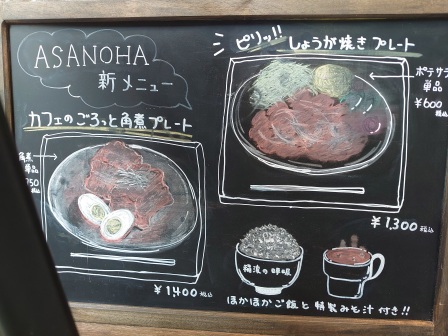 ASANOHA
新メニュー
カフェのごろっと角煮プレート
角煮
単品
750
税込
¥1,400 税込
ピリッ!! しょうが焼きプレート
ポテサラ
単品
¥600
税込
¥1,300 税込
ほかほかご飯と特製みそ汁付き!!